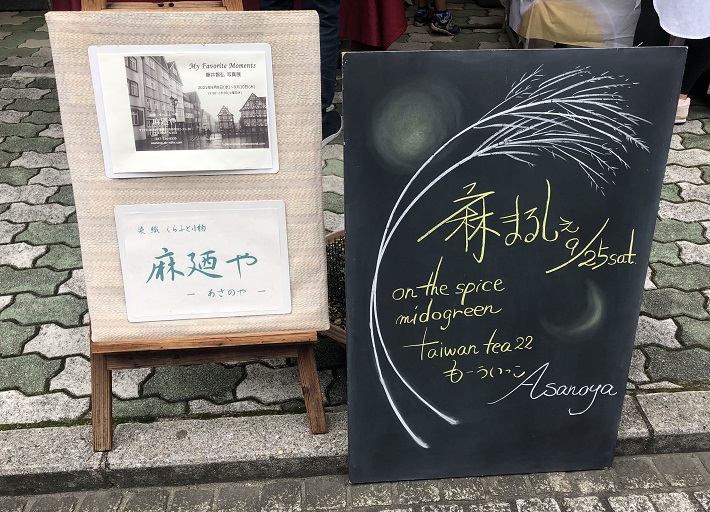 My Favorite Moments
写真展
染織 くらふと小物
麻廼や
ー あさのや ー
麻まるしぇ
9/25sat.
on the spice
midogreen
taiwan tea 22
もーういっこ
Asanoya